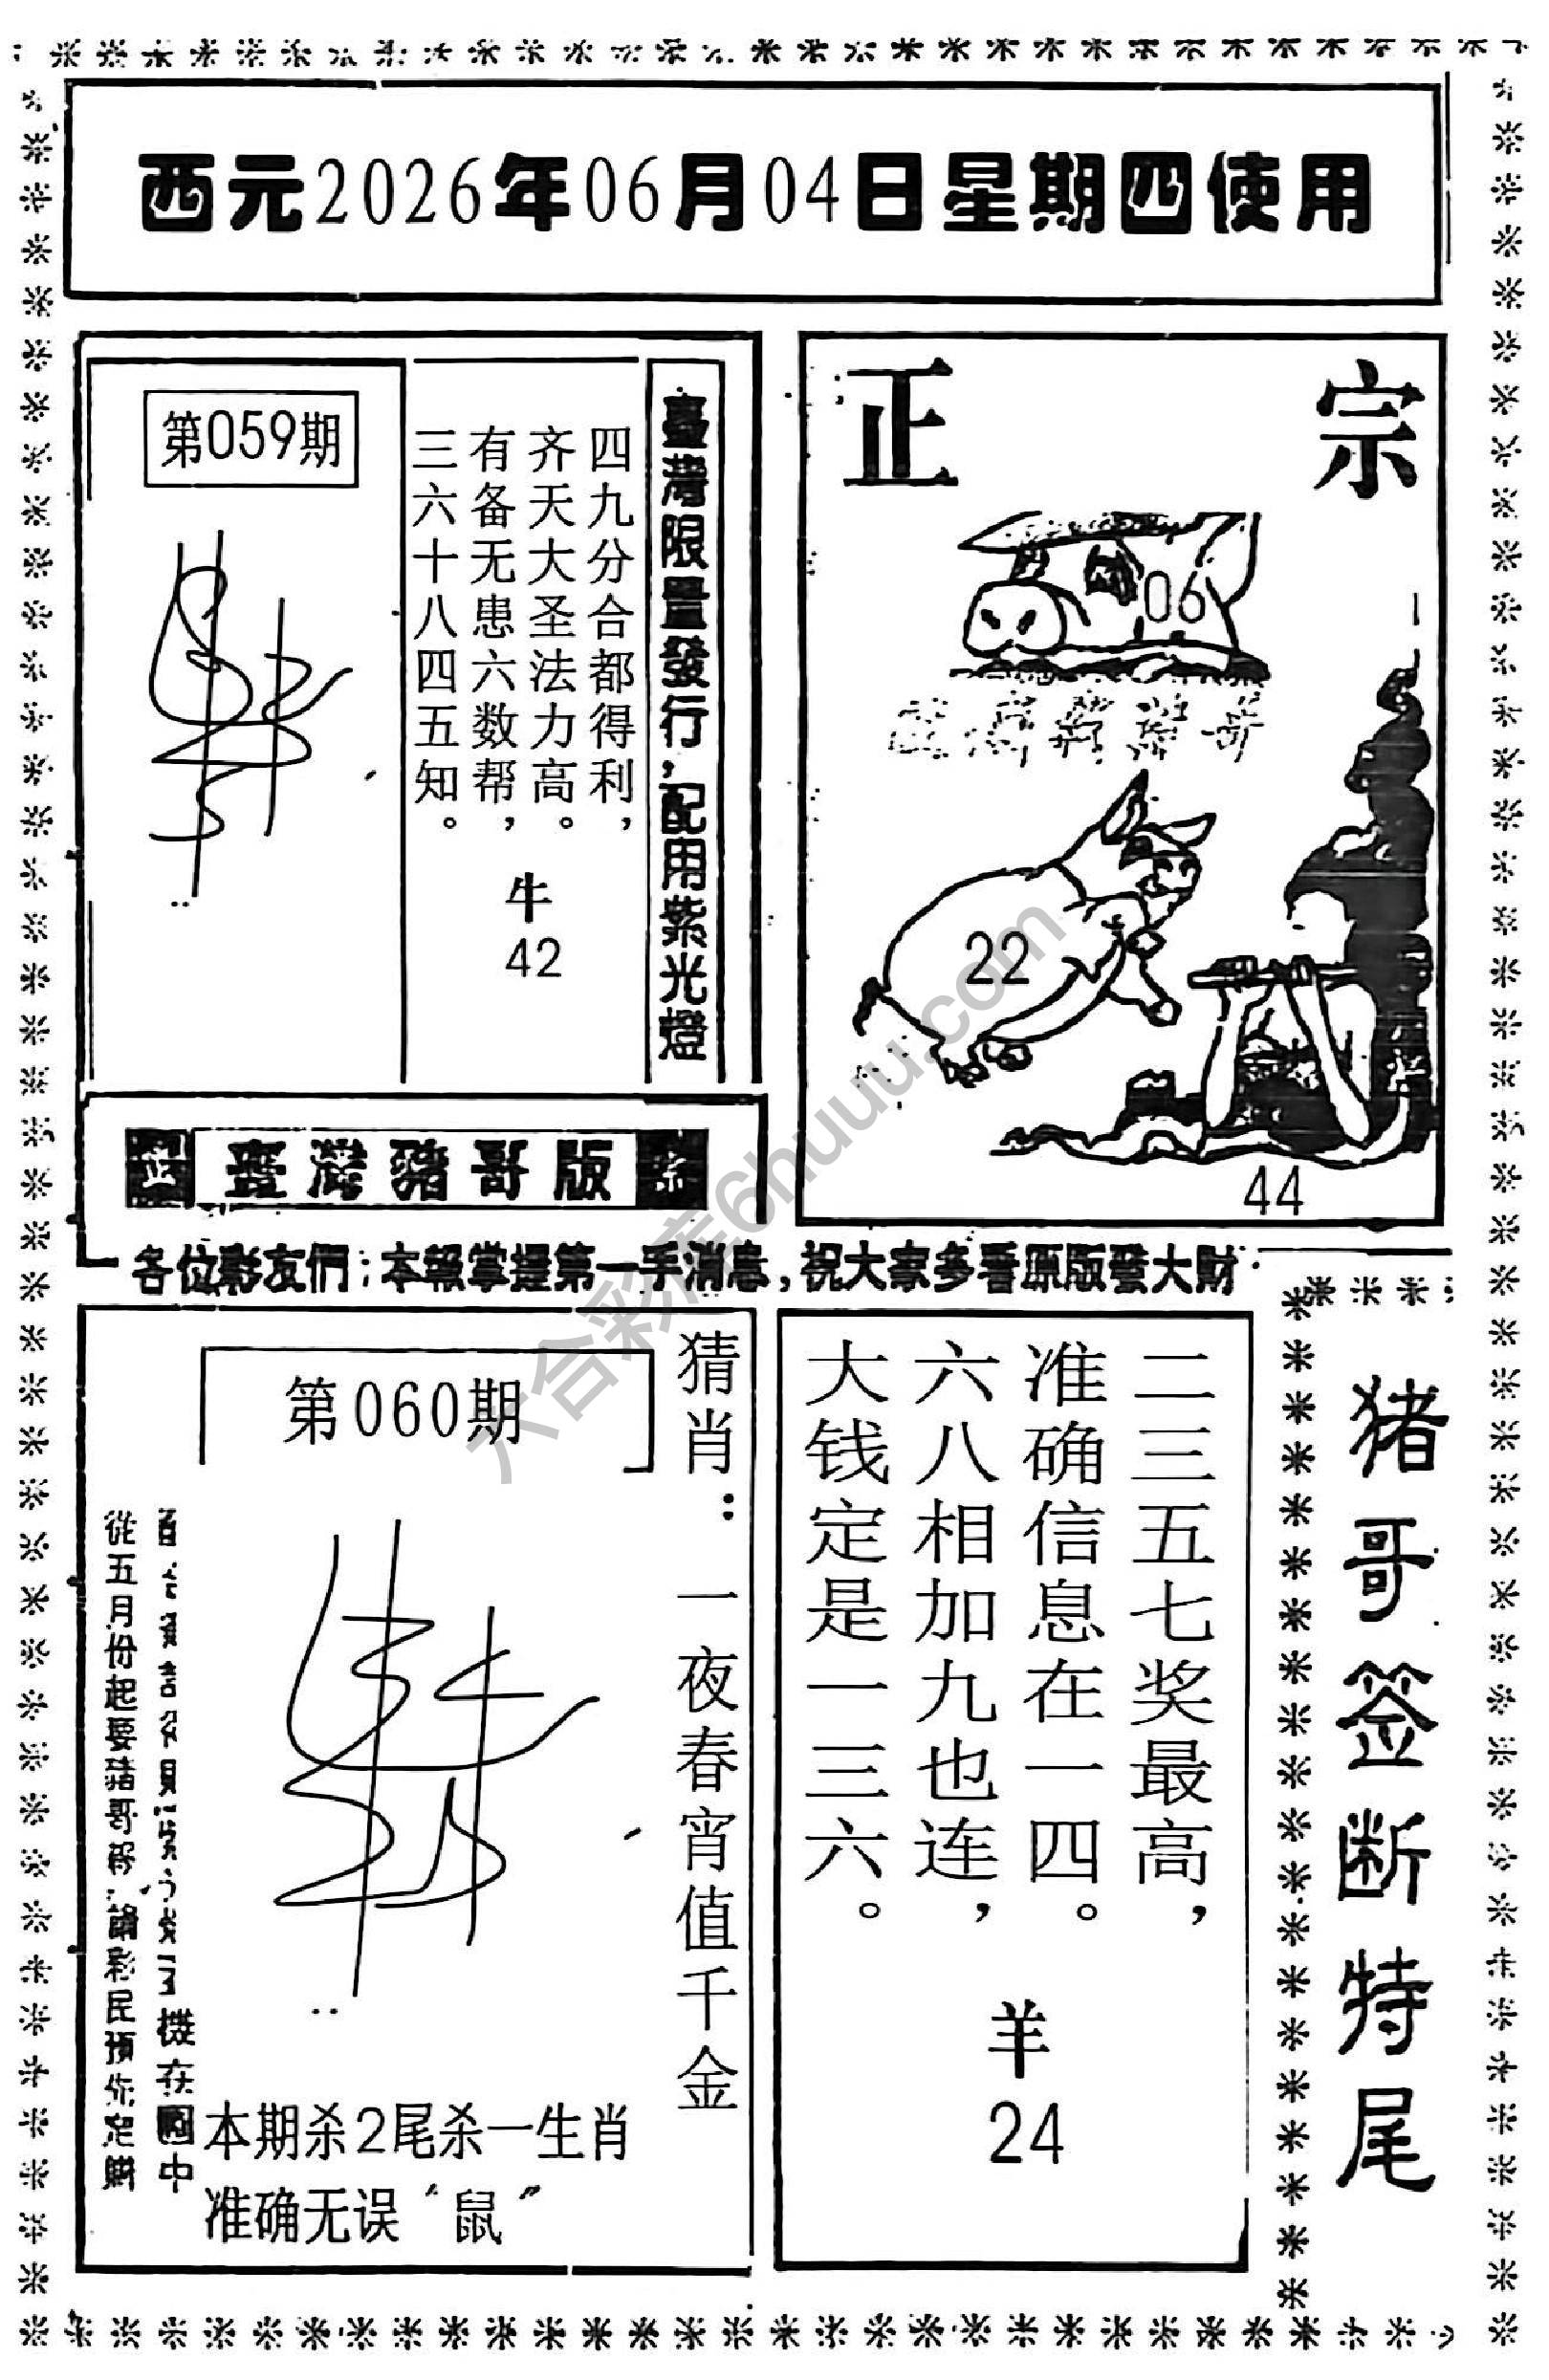 西元2026年06月04日星期四使用
第059期
四九分合都得利，
齐天大圣法力高。
有备无患六数帮，
三六十八四五知。
牛
42
臺灣限量發行，配用紫光燈
正宗
06
22
44
臺灣豬哥版
各位彩友們：本報掌握第一手消息，祝大家多看原版發大財
第060期
猜肖：一夜春宵值千金
從五月份起要豬哥
彩民預
機在圈中
本期杀2尾杀一生肖
准确无误“鼠”
二三五七奖最高，
准确信息在一四。
六八相加九也连，
大钱定是一三六。
羊
24
猪哥签断特尾
六合彩库6huuu.com